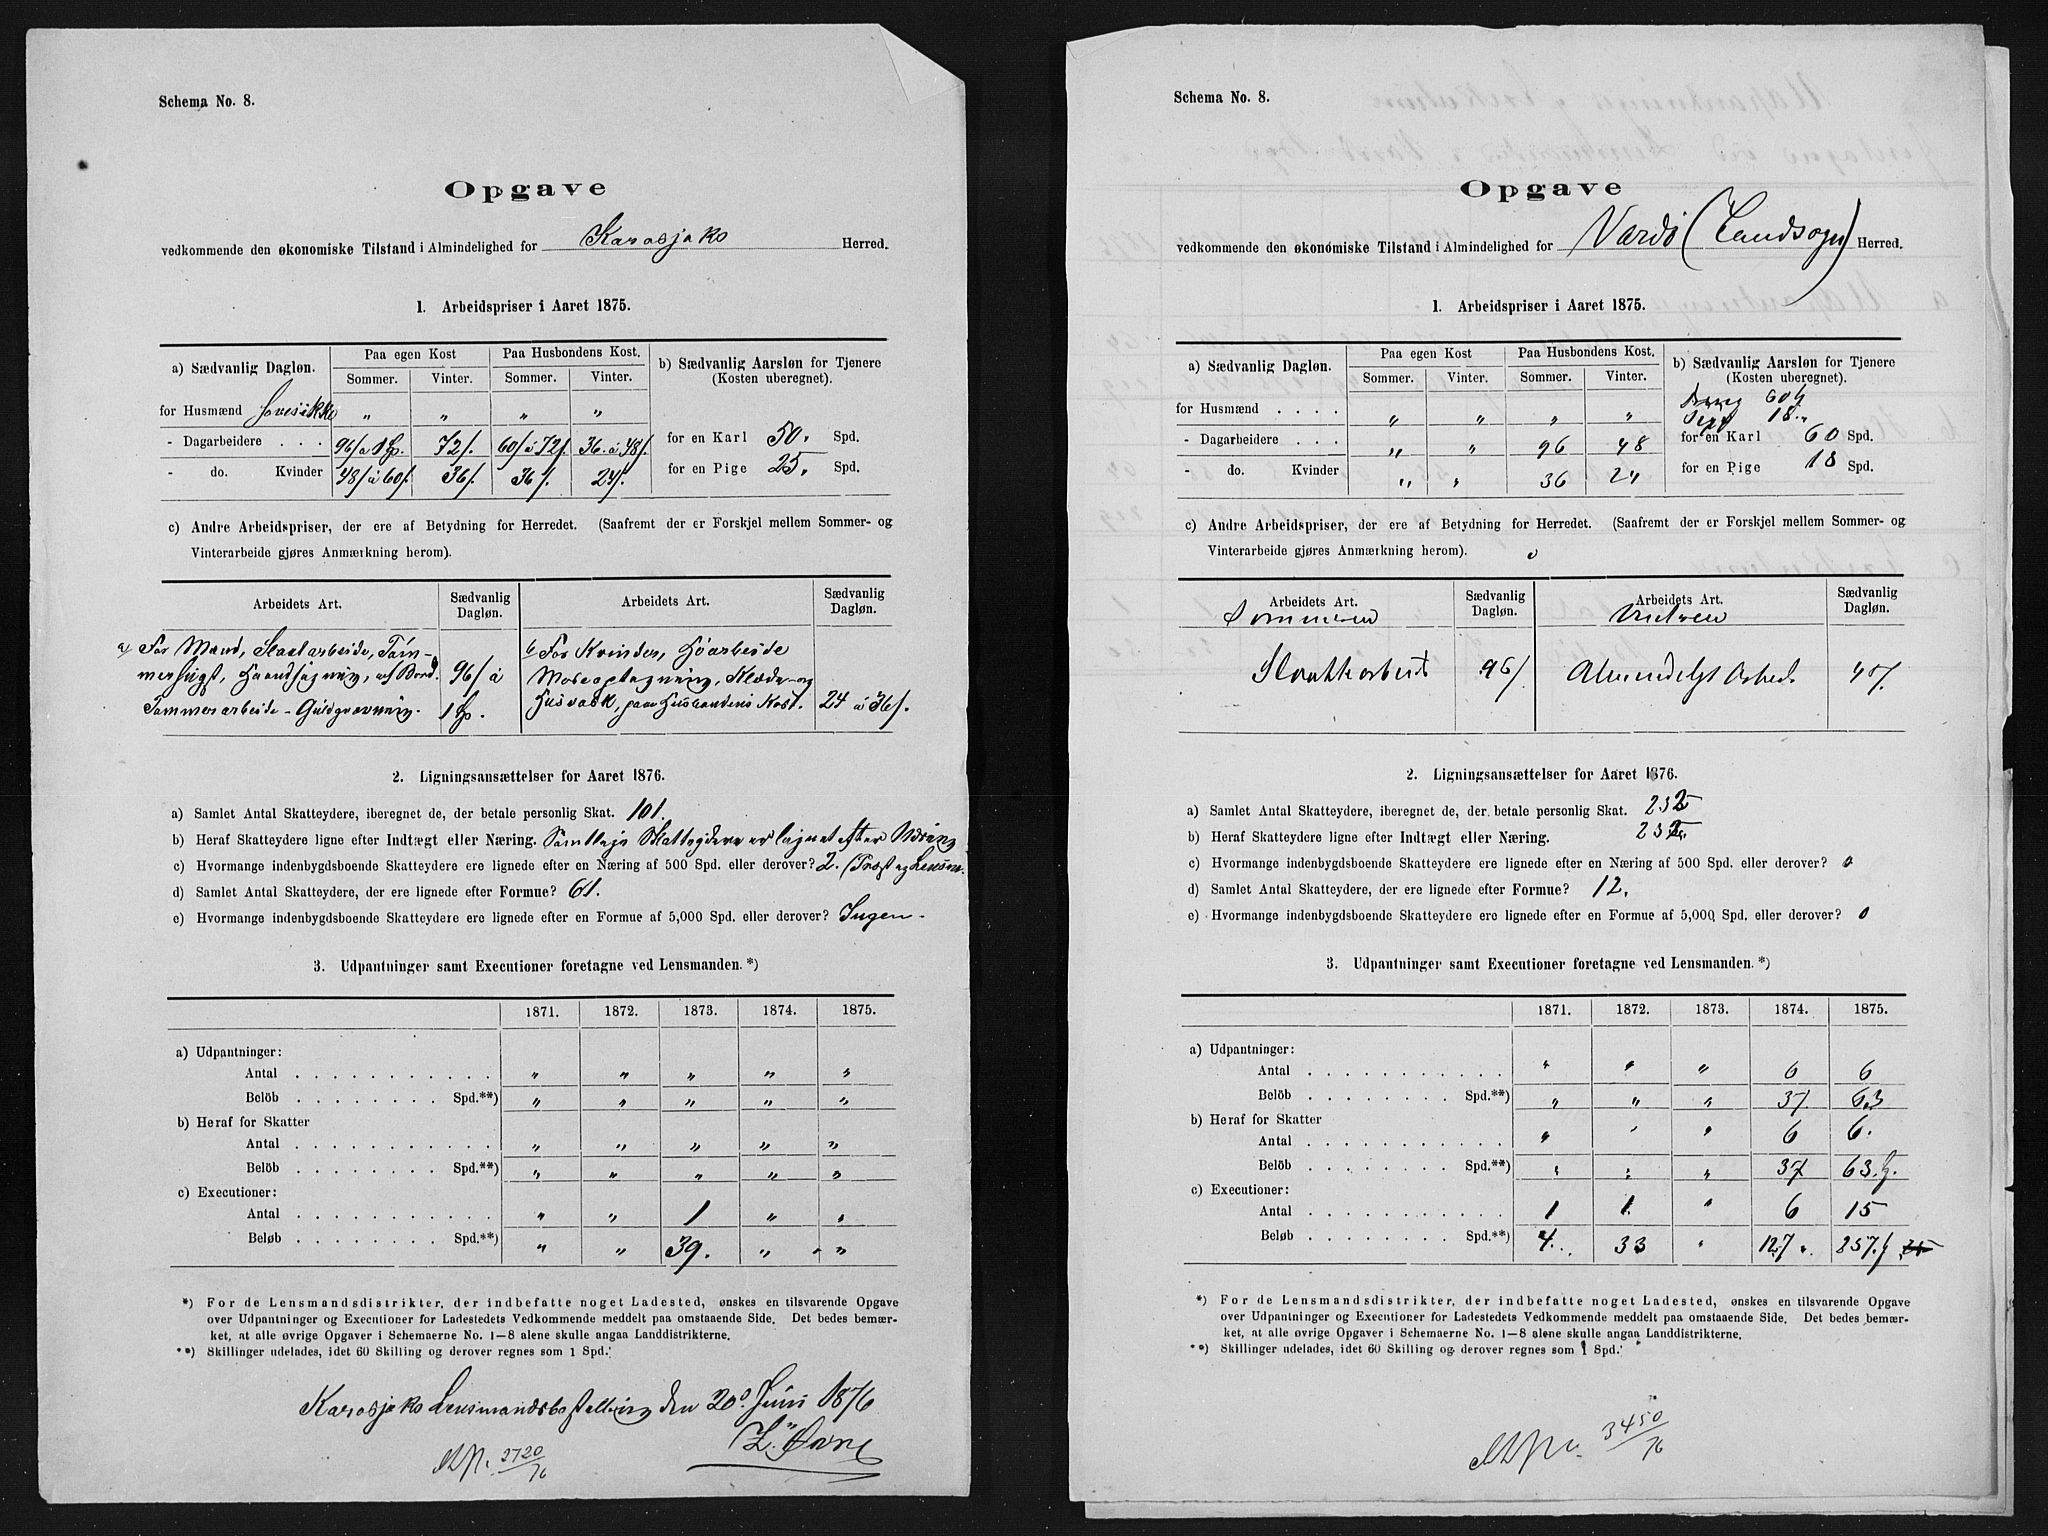 Schema No. 8.
Opgave
vedkommende den økonomiske Tilstand i Almindelighed for Karasjok Herred.
1. Arbeidspriser i Aaret 1875.
a) Sædvanlig Dagløn. Paa egen Kost Paa Husbondens Kost. b) Sædvanlig Aarsløn for Tjenere
Sommer. Vinter. Sommer. Vinter. (Kosten uberegnet).
for Husmænd haves ikke " " " "
- Dagarbeidere . . . 96/ à 1 Sp. 72/. 60/ à 72/. 36. à 48/. for en Karl 50. Spd.
- do. Kvinder 48/ à 60/. 36/. 36/. 24/. for en Pige 25. Spd.
c) Andre Arbeidspriser, der ere af Betydning for Herredet. (Saafremt der er Forskjel mellem Sommer- og
Vinterarbeide gjøres Anmærkning herom).
Arbeidets Art. Sædvanlig Dagløn. Arbeidets Art. Sædvanlig Dagløn.
a) For Mænd, Slaatarbeide, Töm-
merhugst, Haandsagning, af Bord.
Tømmerarbeide - Guldgravning. 96/ à 1 Sp.
b) For Kvinder, Høarbeide
Moseoptagning, Klæde- og
Husvask, paa Husbondens Kost. 24 à 36/.
2. Ligningsansættelser for Aaret 1876.
a) Samlet Antal Skatteydere, iberegnet de, der betale personlig Skat. 101.
b) Heraf Skatteydere ligne efter Indtægt eller Næring. Samtlige Skatteydere er lignet efter Næring
c) Hvormange indenbygdsboende Skatteydere ere lignede efter en Næring af 500 Spd. eller derover? 2. (Præst og Lensm.
d) Samlet Antal Skatteydere, der ere lignede efter Formue? 61.
e) Hvormange indenbygdsboende Skatteydere ere lignede efter en Formue af 5,000 Spd. eller derover? Ingen -
3. Udpantninger samt Executioner foretagne ved Lensmanden.*)
1871. 1872. 1873. 1874. 1875.
a) Udpantninger:
Antal . . . . . . . . . . . " " " " "
Belöb . . . . . . . . Spd.**) " " " " "
b) Heraf for Skatter
Antal . . . . . . . . . . . " " " " "
Belöb . . . . . . . . Spd.**) " " " " "
c) Executioner:
Antal . . . . . . . . . . . " " 1 " "
Beløb . . . . . . . . Spd.**) " " 39. " "
*) For de Lensmandsdistrikter, der indbefatte noget Ladested, ønskes en tilsvarende Opgave
over Udpantninger og Executioner for Ladestedets Vedkommende meddelt paa omstaaende Side. Det bedes bemær-
ket, at alle øvrige Opgaver i Schemaerne No. 1-8 alene skulle angaa Landdistrikterne.
**) Skillinger udelades, idet 60 Skilling og derover regnes som 1 Spd.
Karasjoks Lensmandsbestilling den 20. Juni 1876
3720/76
Schema No. 8.
Opgave
vedkommende den økonomiske Tilstand i Almindelighed for Vardø (Landsogn) Herred.
1. Arbeidspriser i Aaret 1875.
a) Sædvanlig Dagløn. Paa egen Kost Paa Husbondens Kost. b) Sædvanlig Aarsløn for Tjenere
Sommer. Vinter. Sommer. Vinter. (Kosten uberegnet).
Dreng 60
for Husmænd . . . . " " " " Pige 18 "
- Dagarbeidere . . . " " 96 48 for en Karl 60 Spd.
- do. Kvinder " " 36 24 for en Pige 18 Spd.
c) Andre Arbeidspriser, der ere af Betydning for Herredet. (Saafremt der er Forskjel mellem Sommer- og
Vinterarbeide gjøres Anmærkning herom).
Arbeidets Art. Sædvanlig Dagløn. Arbeidets Art. Sædvanlig Dagløn.
Sommeren Vinteren
Slaattearbeid 96/ Almindeligt Arbeid 48/.
2. Ligningsansættelser for Aaret 1876.
a) Samlet Antal Skatteydere, iberegnet de, der betale personlig Skat. 232
b) Heraf Skatteydere ligne efter Indtægt eller Næring. 232.
c) Hvormange indenbygdsboende Skatteydere ere lignede efter en Næring af 500 Spd. eller derover? 0
d) Samlet Antal Skatteydere, der ere lignede efter Formue? 12.
e) Hvormange indenbygdsboende Skatteydere ere lignede efter en Formue af 5,000 Spd. eller derover? 0
3. Udpantninger samt Executioner foretagne ved Lensmanden.*)
1871. 1872. 1873. 1874. 1875.
a) Udpantninger:
Antal . . . . . . . . . . . " " " 6 6
Belöb . . . . . . . . Spd.**) " " " 37. 63
b) Heraf for Skatter
Antal . . . . . . . . . . . " " " 6 6.
Belöb . . . . . . . . Spd.**) " " " 37 63.
c) Executioner:
Antal . . . . . . . . . . . 1 1 " 6 15
Beløb . . . . . . . . Spd.**) 4. 33 " 127 " 257.
*) For de Lensmandsdistrikter, der indbefatte noget Ladested, ønskes en tilsvarende Opgave
over Udpantninger og Executioner for Ladestedets Vedkommende meddelt paa omstaaende Side. Det bedes bemær-
ket, at alle øvrige Opgaver i Schemaerne No. 1-8 alene skulle angaa Landdistrikterne.
**) Skillinger udelades, idet 60 Skilling og derover regnes som 1 Spd.
3450/76